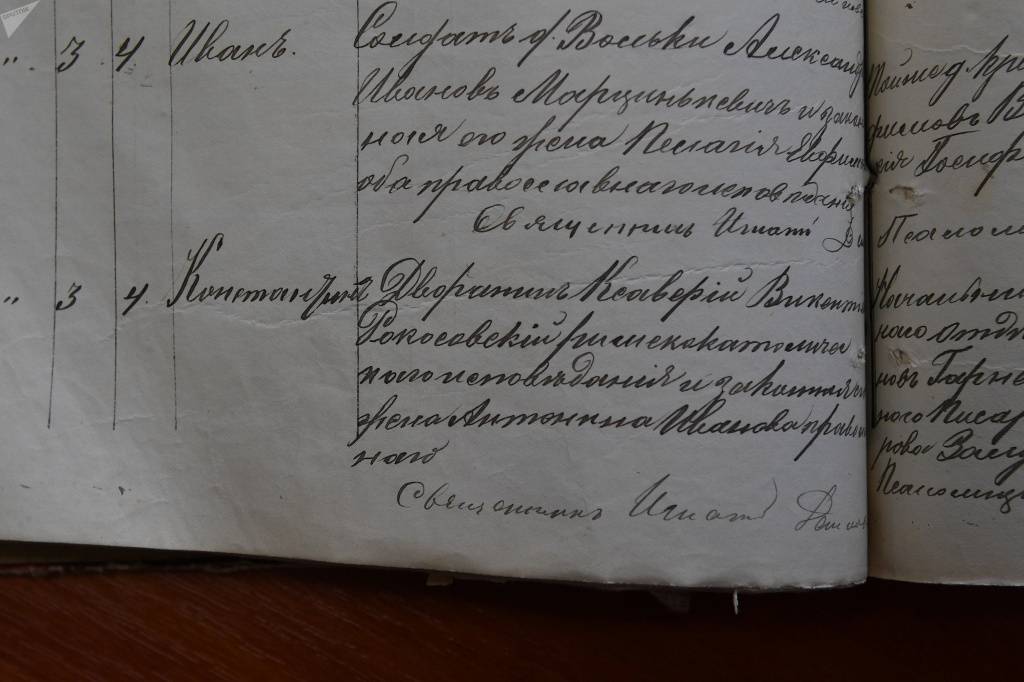 SPUTNIK
" 3 4. Иванъ. Солдатъ д. Вольки Александ
Ивановъ Марцинькевичъ и закон
ная его жена Пелагія Ефрим
оба православнаго исповѣданія
Священникъ Игнатій
" 3 4. Константинъ Дворянинъ Ксаверій Викенть
Рокосовскій римскокатоличе
каго исповѣданія и законная
жена Антонина Иванова правосл
наго
Священникъ Игнатій
Тойже д.
фимовъ
Псалом
Началь
наго отд
новъ Гарне
ного Писар
рова
Псаломщ